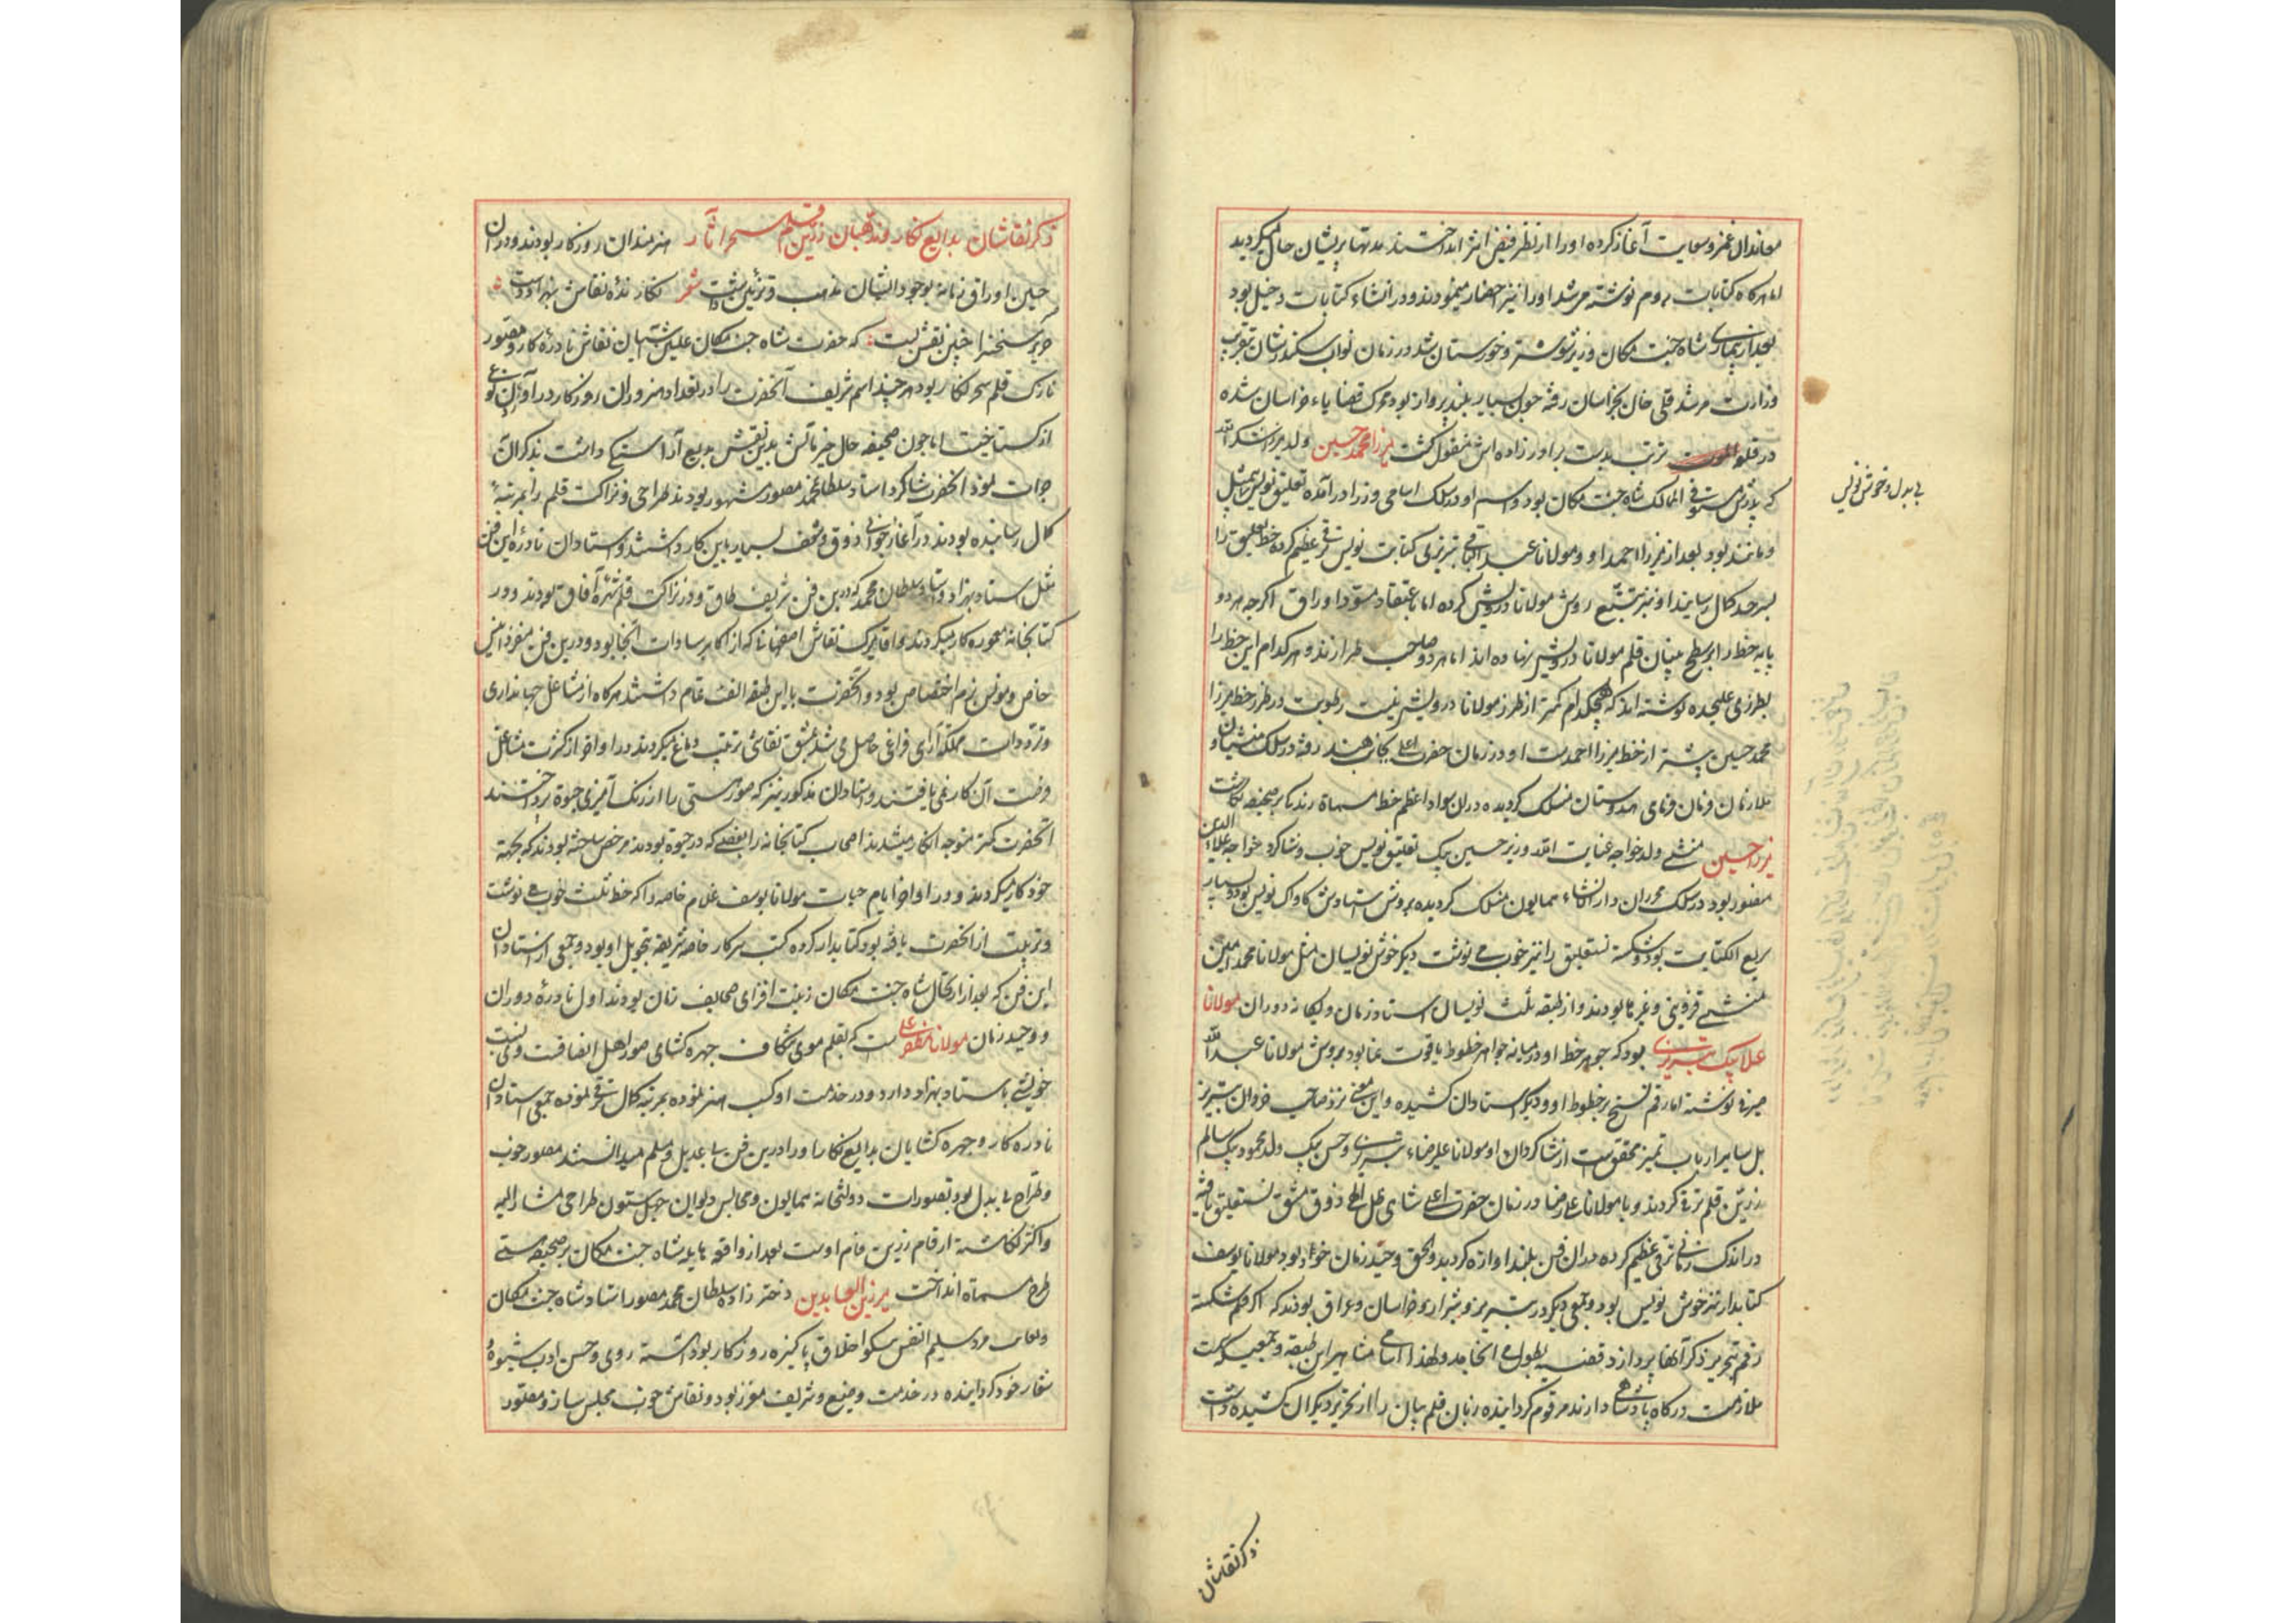 معاندان غمز و سعایت آغاز کرده او را از نظر فیض اثر انداختند مدتها پریشان حال میگردید
اما هرگاه کتابات بروم نوشته میشد او را نیز احضار مینمودند و در انشاء کتابات دخیل بود
بعد از بیماری شاه جنت مکان وزیر شوشتر و خوزستان شد در زمان نواب سکندرشان بتقریب
وزارت مرشد قلی خان بخراسان رفته چون بسیار بلند پرواز بود محرک قضایاء خراسان شده
در تربت بدست برادرزاده‌اش مقتول گشت میرزا محمد حسین ولد میرزا شکرالله
که پدرش مستوفی الممالک شاه جنت مکان بود و اسم او در سلک اسامی وزرا درآمده تعلیق نویس بیمثل
بی بدل و خوش نویس
و مانند بود بعد از میرزا احمد او و مولانا عبدالباقی تبریزی کتابت نویس ترقی عظیم کرده خط تعلیق را
بسرحد کمال رسانید او نیز تتبع روش مولانا درویش کرده اما باعتقاد مسود اوراق اگرچه هر دو
پایه خط را بر سطح بنیان قلم مولانا درویش نهاده‌اند اما هر دو صاحب طرزند و هر کدام این خط را
بطرزی علیحده نوشته‌اند که هیچکدام کمتر از طرز مولانا درویش نیست رطوبت در طرز خط میرزا
محمد حسین بیشتر از خط میرزا احمد است او در زمان حضرت اعلی بجانب هند رفته در سلک منشیان و
ملازمان فرمان فرمای هندوستان منسلک گردیده در آن سواد اعظم خط مسماة زندگی بر صحیفه گذاشت
میرزا حسین منشی ولد خواجه عنایت الله وزیر حسین بیک تعلیق نویس خوب و شاگرد خواجه علاء الدین
منصور بود در سلک محرران دار الانشاء همایون منسلک گردیده بروش استادش کاواک نویس بود و بسیار
سریع الکتابت بود و شکسته نستعلیق را نیز خوب می نوشت دیگر خوش نویسان مثل مولانا محمد امین
منشی قزوینی و غیرها بودند و از طبقه ثلث نویسان استاد زمان و یگانه دوران مولانا
علا بیک تبریزی بود که جوهر خط او در میانه جواهر خطوط یاقوت نما بود بروش مولانا عبدالله
صیرفی نوشته اما رقم نسخ بر خطوط او و دیگر استادان کشیده و این معنی نزد صاحب خردان تبریز
بل سایر ارباب تمیز محقق است از شاگردان او مولانا علیرضاء تبریزی و حسن بیک ولد محمود بیک سالم
زرین قلم ترقی کردند و با مولانا علی رضا در زمان حضرت اعلی شاهی ظل اللهی ذوق مشق نستعلیق یافته
در اندک زمانی ترقی عظیم کرده در آن فن بلند آوازه گردید و بحق وحید زمان خود بود مولانا یوسف
کتابدار نیز خوش نویس بود و جمعی دیگر در تبریز و شیراز و خراسان و عراق بودند که اگر قلم شکسته
رقم بتحریر ذکر آنها پردازد قضیه بطول می انجامد و لهذا اسامی مشاهیر این طبقه و جمعی که نسبت
ملازمت درگاه پادشاهی دارند مرقوم گردانیده زبان قلم بیان را از تحریر دیگران کشیده داشت
ذکر نقاشان
ذکر نقاشان بدایع نگار و مذهبان زرین قلم سحر آثار هنرمندان روزگار بودند و در آن
حین اوراق زمانه بوجود ایشان مذهب و تزئین داشت شعر نگارنده نقاش بهزاد دست
حریر سخن را چنین نقش بست که حضرت شاه جنت مکان علیین آشیان نقاش نادره کار و مصور
نازک قلم سحرنگار بود هر چند اسم شریف آنحضرت را در تعداد هنروران روزگار درآوردن نوعی
از گستاخیست اما چون صحیفه حال خیر مآلش بدین نقش بدیع آراستگی داشت بذکر آن
جرات نمود آنحضرت شاگرد استاد سلطان محمد مصور مشهور بودند طراحی و نزاکت قلم را بمرتبه
کمال رسانیده بودند در آغاز جوانی ذوق و شعف بسیار باین کار داشتند و استادان نادره این فن
مثل استاد بهزاد و استاد سلطان محمد که درین فن شریف طاق و در نزاکت قلم شهره آفاق بودند در
کتابخانه معموره کار میکردند و آقا میرک نقاش اصفهانی که از اکابر سادات آنجا بود و درین فن منفرد انیس
خاص و مونس بزم اختصاص بود و آنحضرت با این طبقه الفت تمام داشتند هرگاه از مشاغل جهانداری
و ترددات مملکت آرای فراغی حاصل می شد بمشق نقاشی تربیت دماغ میکردند در اواخر از کثرت مشاغل
فرصت آن کار نمی یافتند و استادان مذکور نیز که صور هستی را از رنگ آمیزی حیوة پرداختند
آنحضرت کمتر متوجه آن کار میشدند اصحاب کتابخانه را بعضی که در حیوة بودند مرخص ساخته بودند که بجهة
خود کار میکردند و در اواخر ایام حیات مولانا یوسف غلام خاصه را که خط ثلث خوب می نوشت
و تربیت از آنحضرت یافته بود کتابدار کرده کتب سرکار خاصه شریفه بتحویل او بود و جمعی از استادان
این فن که بعد از ارتحال شاه جنت مکان زینت افزای صحایف زمان بودند اول نادره دوران
و وحید زمان مولانا مظفر علی است که بقلم موی شکاف چهره گشای صور اهل انصافست و نسبت
خویشی باستاد بهزاد دارد و در خدمت او کسب هنر نموده بمرتبه کمال ترقی نموده جمیع استادان
نادره کار و چهره گشایان بدایع نگار او را درین فن بی عدیل و مسلم میدانستند مصور خوب
و طراح بی بدل بود تصویرات دولتخانه همایون و مجالس دیوان چهل ستون طراحی مشار الیه
و اکثر نگاشته ارقام زرین فام اوست بعد از واقعه هایله شاه جنت مکان بر صحیفه هستی
طرح مسماة انداخت میر زین العابدین دختر زاده سلطان محمد مصور استاد شاه جنت مکان
مرد سلیم النفس نیکو اخلاق پاکیزه روزگار بود آهسته روی و حسن ادب شیوه
شعار خود گردانیده در خدمت وضیع و شریف معزز بود و نقاش خوب مجلس ساز و مصور